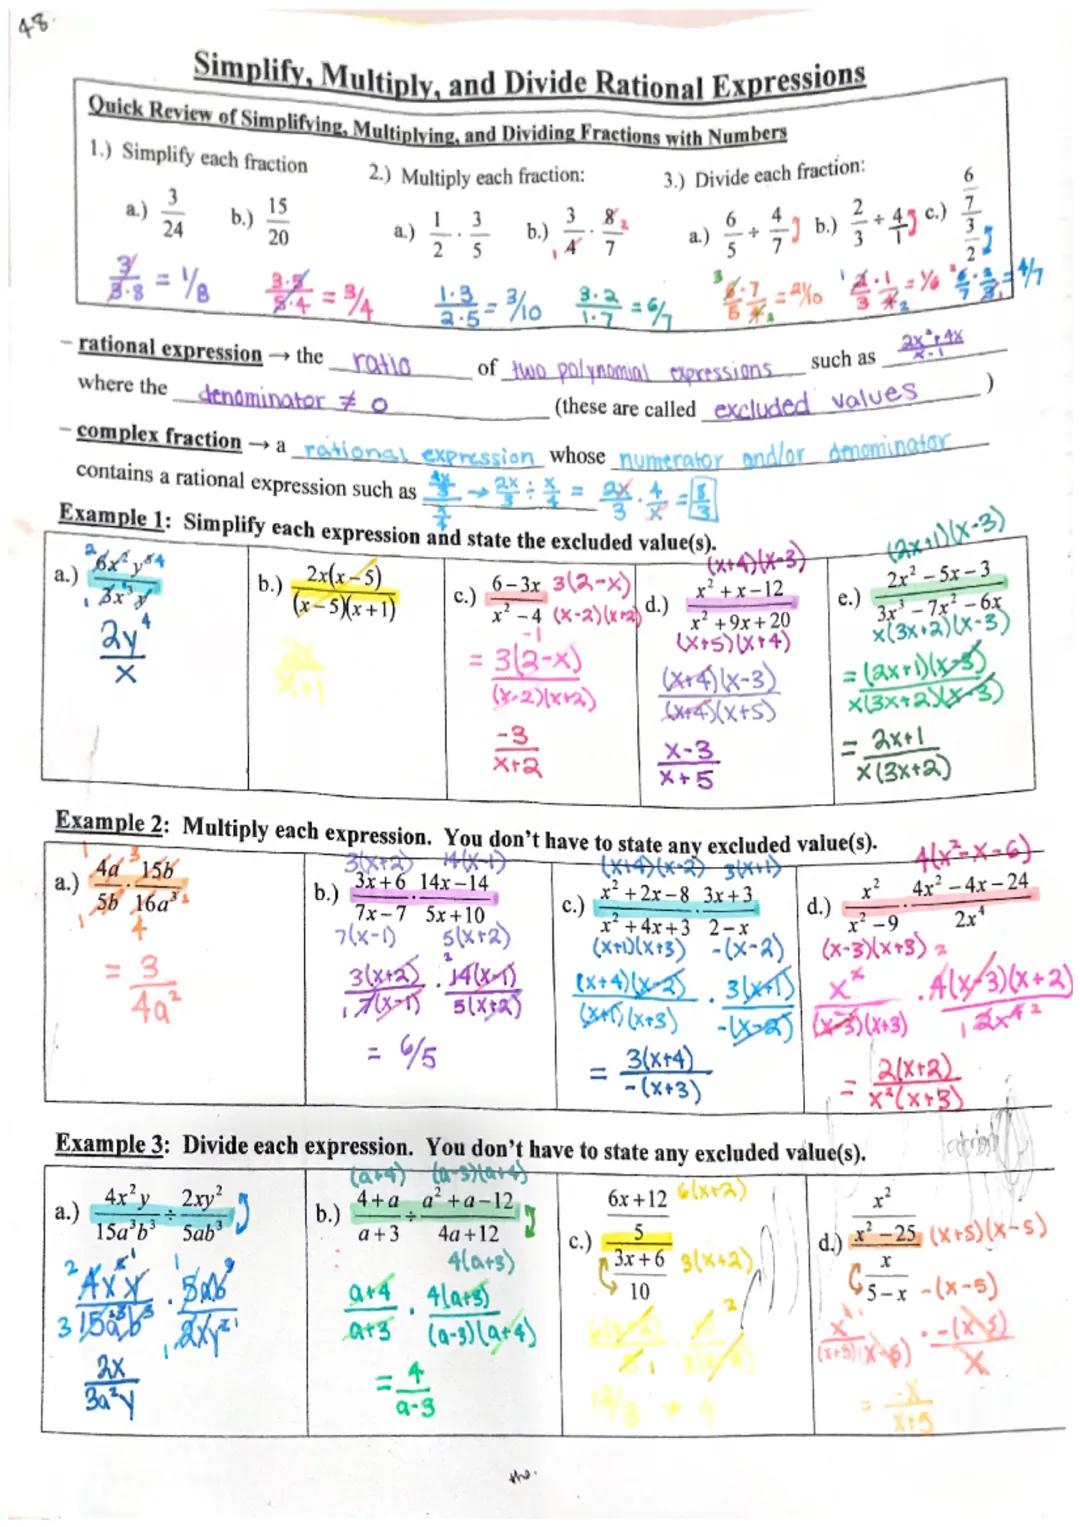 48.
Simplify, Multiply, and Divide Rational Expressions
Quick Review of Simplifying, Multiplying, and Dividing Fractions with Numbers
1.) Simplify each fraction 2.) Multiply each fraction: 3.) Divide each fraction:
a.) 3/24 b.) 15/20 a.) 1/2 · 3/5 b.) 3/4 · 8/7 a.) 6/5 ÷ 4/7 b.) 2/3 ÷ 4/1 c.) 6/7 / 3/2
3/3·8 = 1/8 3·5/5·4 = 3/4 1·3/2·5 = 3/10 3·2/1·7 = 6/7 6·7/5·4 = 21/10 2·1/3·4 = 1/6 6·2/7·3 = 4/7
– rational expression → the ratio of two polynomial expressions such as 2x²+4x/x-1
where the denominator ≠ 0 (these are called excluded values )
– complex fraction → a rational expression whose numerator and/or denominator
contains a rational expression such as 2x/3 / x/4 → 2x/3 ÷ x/4 = 2x/3 · 4/x = 8/3
Example 1: Simplify each expression and state the excluded value(s).
a.) 6x²y⁵/3x³y
2y⁴/x
b.) 2x(x – 5)/(x – 5)(x + 1)
2x/x+1
c.) 6 – 3x/x² – 4 3(2-x)/(x-2)(x+2)
-1
= 3(2-x)/(x-2)(x+2)
-3/x+2
(x+4)(x-3)
d.) x² + x – 12/x² + 9x + 20
(x+5)(x+4)
(x+4)(x-3)/(x+4)(x+5)
x-3/x+5
(2x+1)(x-3)
e.) 2x² – 5x – 3/3x³ – 7x² – 6x
x(3x+2)(x-3)
= (2x+1)(x-3)/x(3x+2)(x-3)
= 2x+1/x(3x+2)
Example 2: Multiply each expression. You don't have to state any excluded value(s).
a.) 4a/5b · 15b/16a³
= 3/4a²
3(x+2) 14(x-1)
b.) 3x+6/7x–7 · 14x–14/5x+10
7(x-1) 5(x+2)
3(x+2)/7(x-1) · 14(x-1)/5(x+2)
= 6/5
(x+4)(x-2) 3(x+1)
c.) x² + 2x – 8/x² + 4x + 3 · 3x + 3/2 – x
(x+1)(x+3) -(x-2)
(x+4)(x-2)/(x+1)(x+3) · 3(x+1)/-(x-2)
= 3(x+4)/-(x+3)
4(x²-x-6)
d.) x²/x² – 9 · 4x² – 4x – 24/2x⁴
(x-3)(x+3)
x²/(x-3)(x+3) · 4(x-3)(x+2)/2x⁴
= 2(x+2)/x²(x+3)
Example 3: Divide each expression. You don't have to state any excluded value(s).
a.) 4x²y/15a³b³ ÷ 2xy²/5ab³
4x²y/15a³b³ · 5ab³/2xy²
2x/3a²y
(a+4) (a-3)(a+4)
b.) 4 + a/a + 3 ÷ a² + a – 12/4a + 12
4(a+3)
a+4/a+3 · 4(a+3)/(a-3)(a+4)
= 4/a-3
c.) 6x + 12/5 6(x+2)
3x + 6/10 3(x+2)
12/3 → 4
d.) x²/x² – 25 (x+5)(x-5)
x/5 – x -(x-5)
x²/(x+5)(x-5) · -(x-5)/x
= -x/x+5
the.